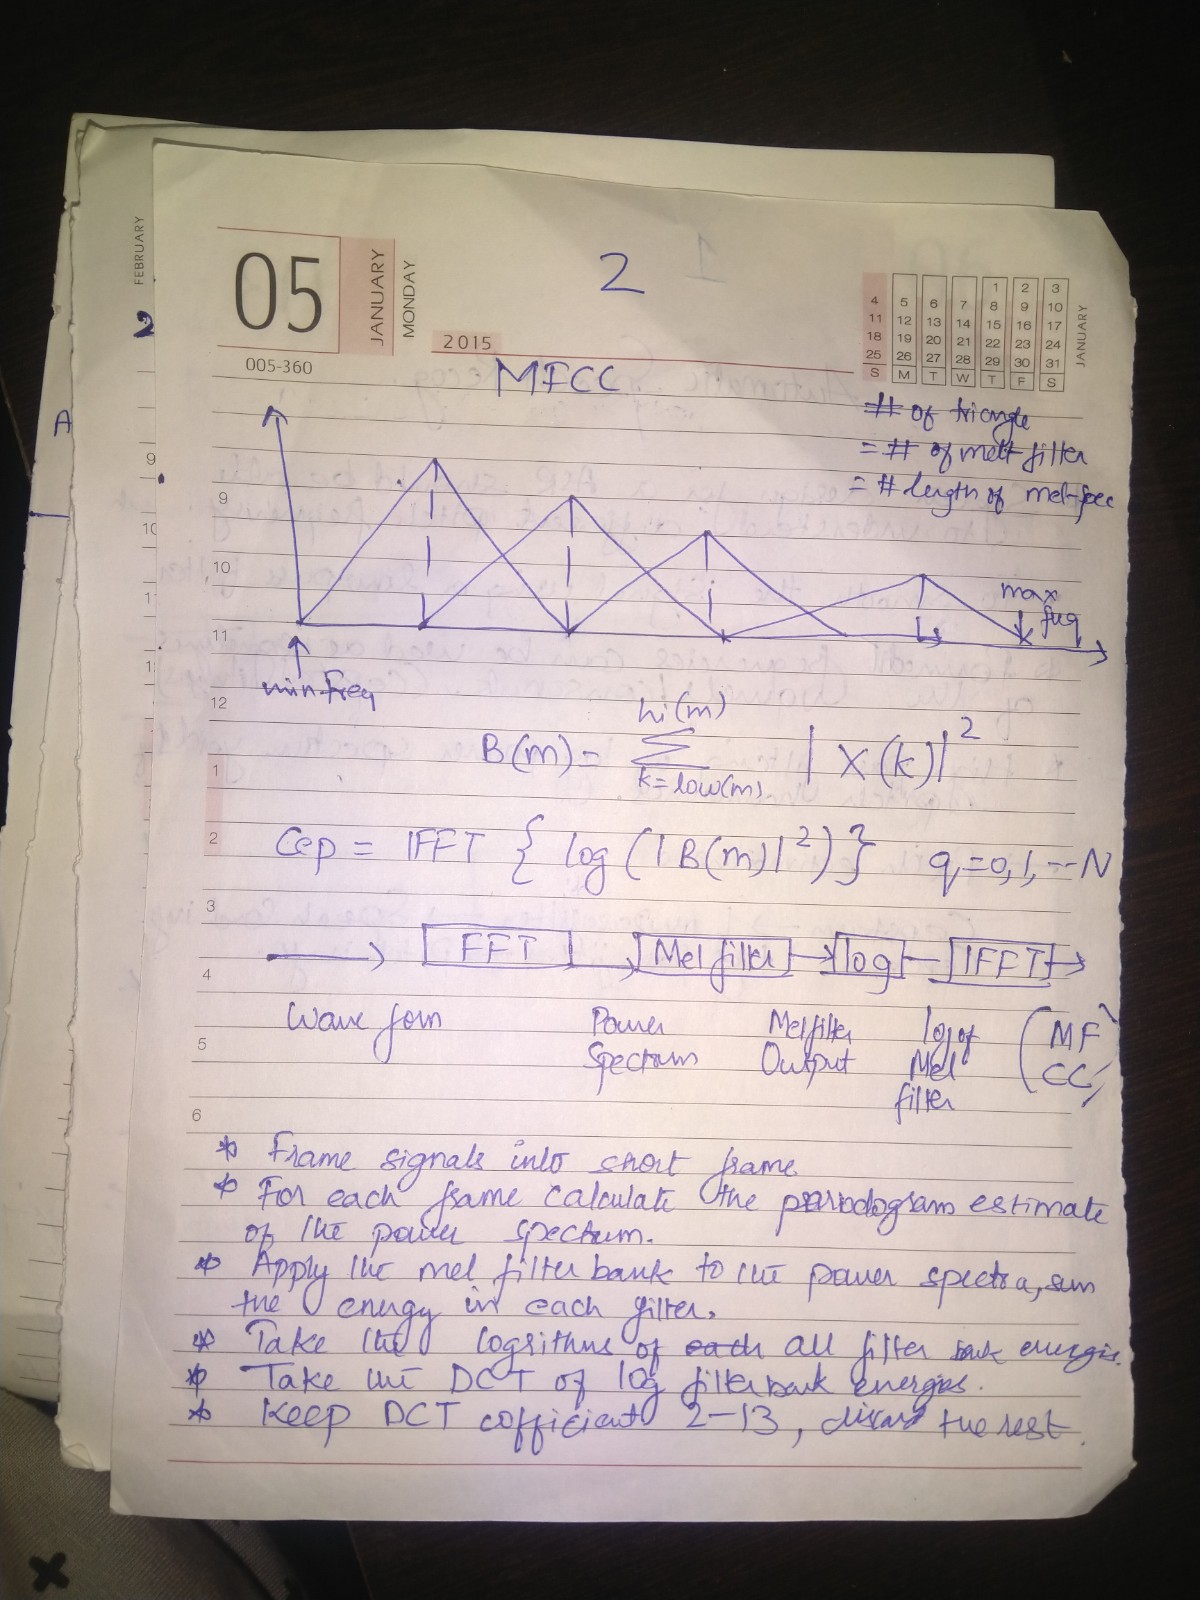 FEBRUARY
05
JANUARY
MONDAY
2015
005-360
2
1 2 3
4 5 6 7 8 9 10
11 12 13 14 15 16 17
18 19 20 21 22 23 24
25 26 27 28 29 30 31
S M T W T F S
JANUARY
MFCC
# of triangle
= # of melt filter
= # length of mel-spec
A
9
10
1
11
9
10
11
12
1
2
3
4
5
6
max
freq
min freq
B(m) = hi(m) Σ k=low(m) |X(k)|²
Cep = IFFT { log (|B(m)|²) } q=0,1,--N
FFT Mel filter log IFFT
Wave form Power Mel filter log of (MF
Spectrum Output Mel CC)
filter
* Frame signals into short frame
* For each frame calculate the periodogram estimate
of the power spectrum.
* Apply the mel filter bank to the power spectra, sum
the energy in each filter.
* Take the logrithms of each all filter bank energis.
* Take the DCT of log filterbank energies.
* Keep DCT cofficient 2-13, discard the rest.